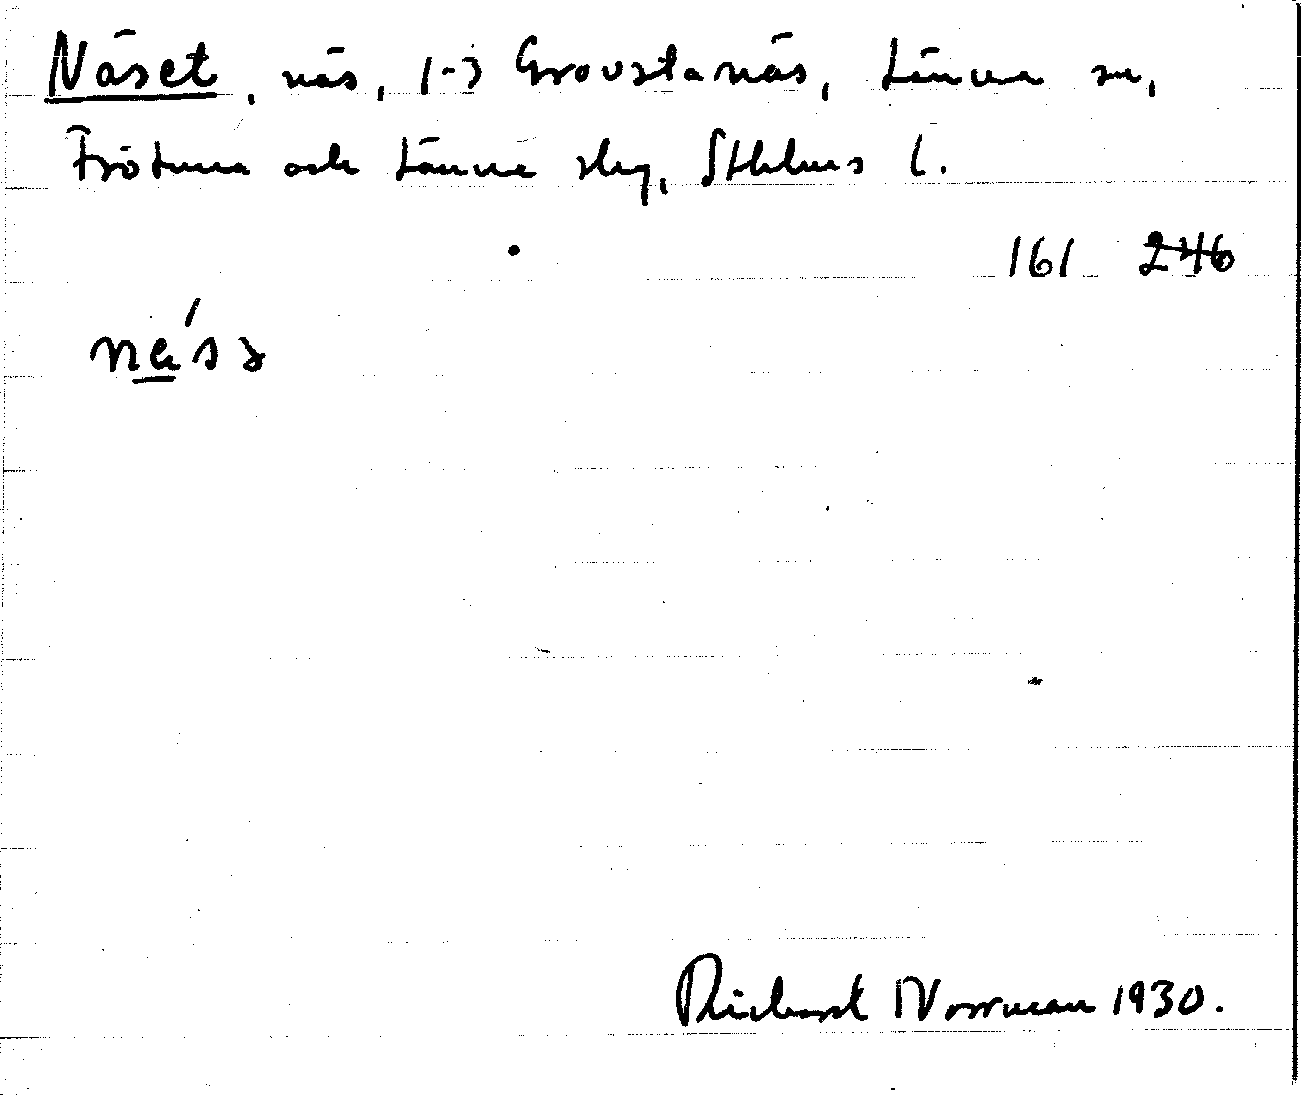 Näset, näs, 1-3 Grovstanäs, Länna sn,
Frötuna och Länna slg, Sthlms l.
161 246
Richard Norrman 1930.